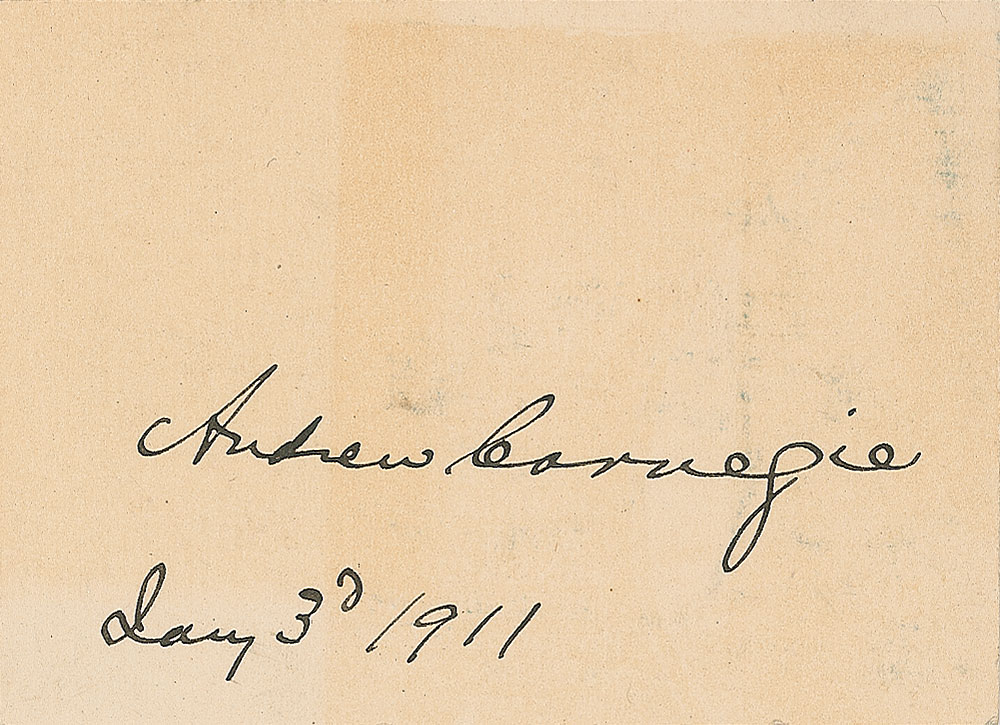 Andrew Carnegie
Jany 3d 1911